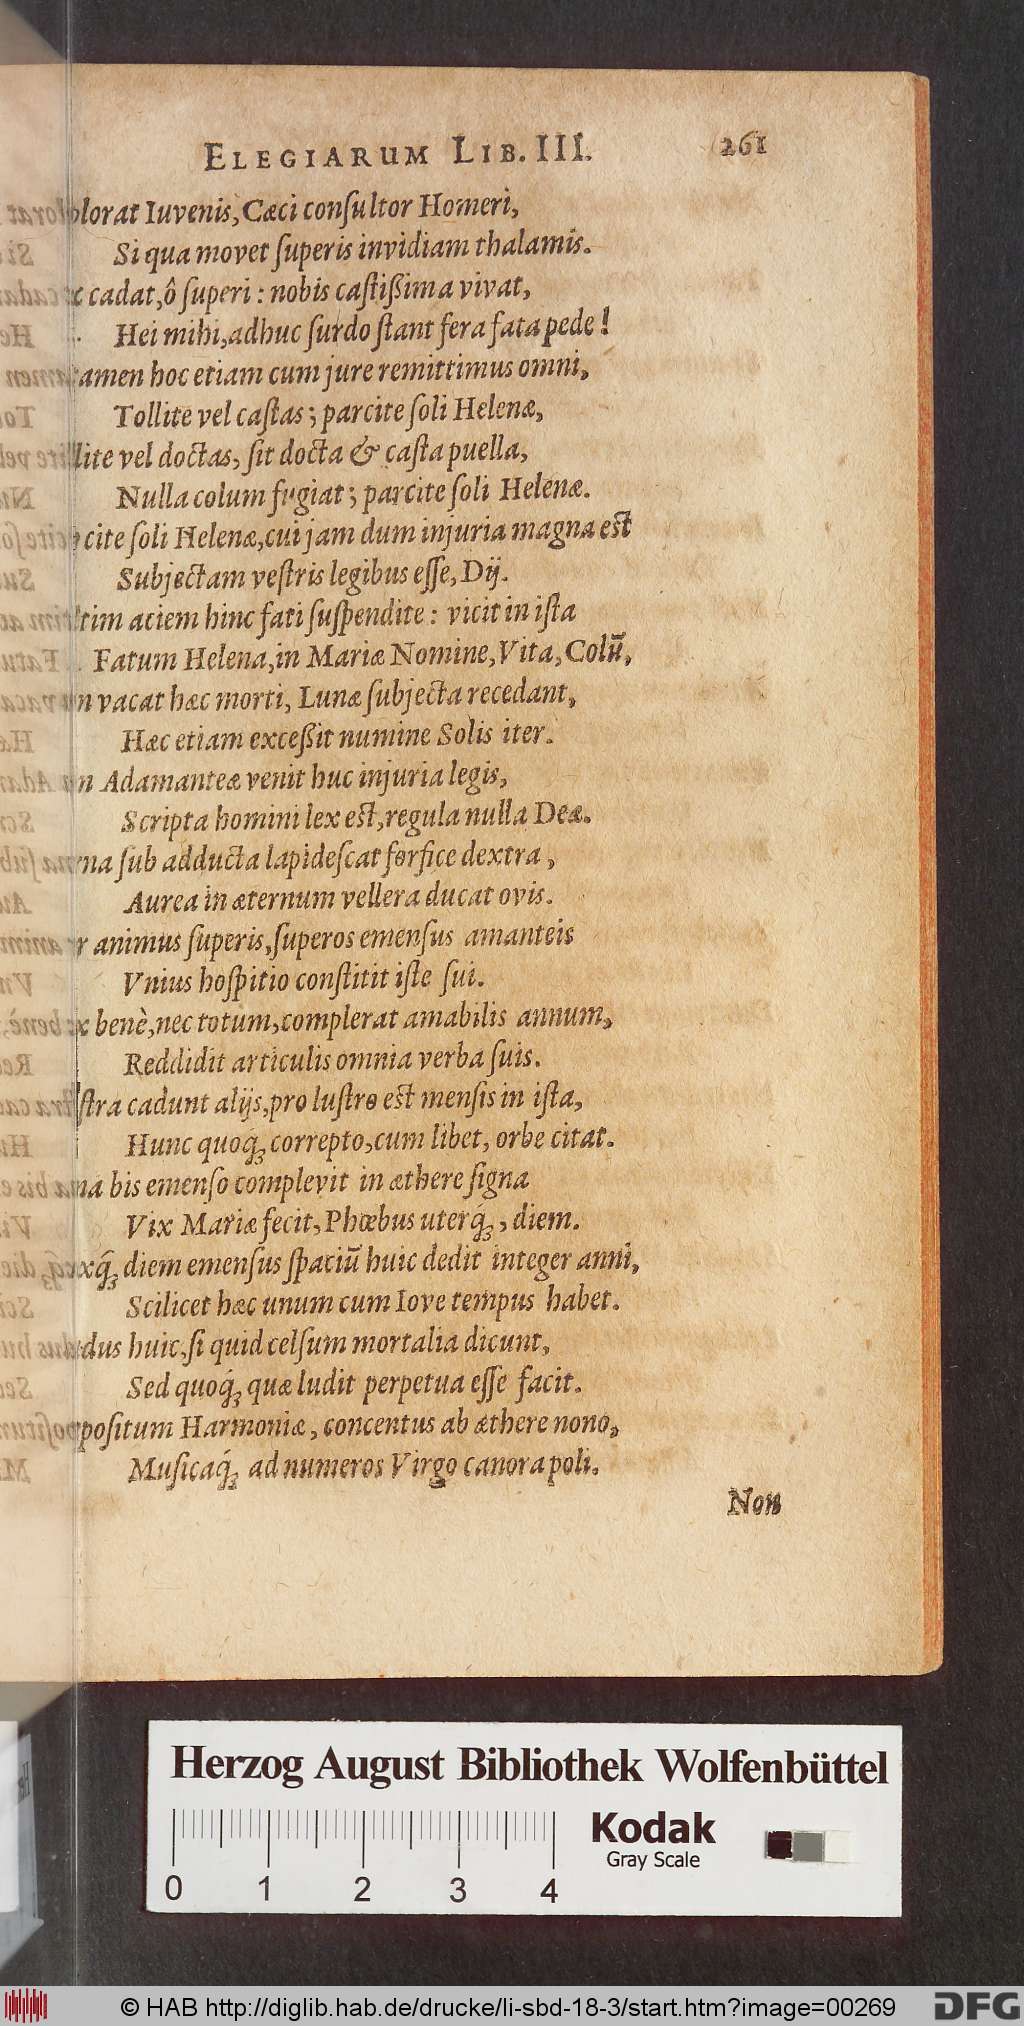 ELEGIARUM LIB. III. 261
plorat Iuvenis, Cæci conſultor Homeri,
Si qua movet ſuperis invidiam thalamis.
cadat, ô ſuperi : nobis caſtißima vivat,
Hei mihi, adhuc ſurdo ſtant fera fata pede !
tamen hoc etiam cum jure remittimus omni,
Tollite vel caſtas ; parcite ſoli Helenæ,
llite vel doctas, ſit docta & caſta puella,
Nulla colum fugiat ; parcite ſoli Helenæ.
cite ſoli Helenæ, cui jam dum injuria magna eſt
Subjectam veſtris legibus eſſe, Dij.
tim aciem hinc fati ſuſpendite : vicit in iſta
Fatum Helena, in Mariæ Nomine, Vita, Colū,
n vacat hæc morti, Lunæ ſubjecta recedant,
Hæc etiam exceßit numine Solis iter.
n Adamanteæ venit huc injuria legis,
Scripta homini lex eſt, regula nulla Deæ.
na ſub adducta lapideſcat forfice dextra ,
Aurea in æternum vellera ducat ovis.
r animus ſuperis, ſuperos emenſus amanteis
Vnius hoſpitio conſtitit iſte ſui.
x benè, nec totum, complerat amabilis annum,
Reddidit articulis omnia verba ſuis.
ſtra cadunt alijs, pro luſtro eſt menſis in iſta,
Hunc quoq́; correpto, cum libet, orbe citat.
na bis emenſo complevit in æthere ſigna
Vix Mariæ fecit, Phœbus uterq́; , diem.
xq́; diem emenſus ſpaciū huic dedit integer anni,
Scilicet hæc unum cum Iove tempus habet.
dus huic, ſi quid celſum mortalia dicunt,
Sed quoq́; quæ ludit perpetua eſſe facit.
poſitum Harmoniæ, concentus ab æthere nono,
Muſicaq́; ad numeros Virgo canora poli.
Non
Herzog August Bibliothek Wolfenbüttel
Kodak
Gray Scale
0 1 2 3 4
© HAB http://diglib.hab.de/drucke/li-sbd-18-3/start.htm?image=00269
DFG